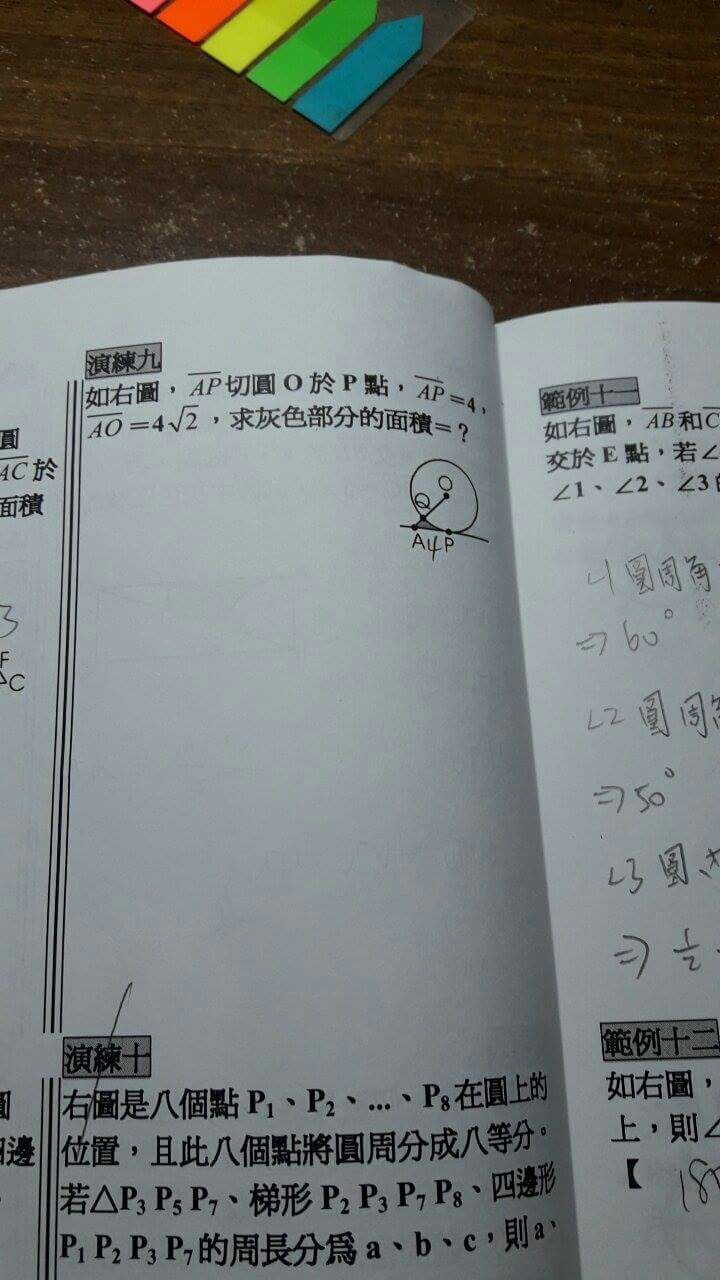 圓
AC 於
面積
3
F
C
演練九
如右圖，AP切圓 O 於 P 點，AP=4，
AO=4√2，求灰色部分的面積=？
O
Q
A 4 P
演練十
右圖是八個點 P₁、P₂、...、P₈在圓上的
位置，且此八個點將圓周分成八等分。
若△P₃ P₅ P₇、梯形 P₂ P₃ P₇ P₈、四邊形
P₁ P₂ P₃ P₇的周長分為 a、b、c，則 a、
圓
四邊
範例十一
如右圖，AB和C
交於 E 點，若∠
∠1、∠2、∠3的
∠1 圓周角
⇒ 60°
∠2 圓周角
⇒ 50°
∠3 圓
⇒ 1/2
範例十二
如右圖，
上，則∠
【
18